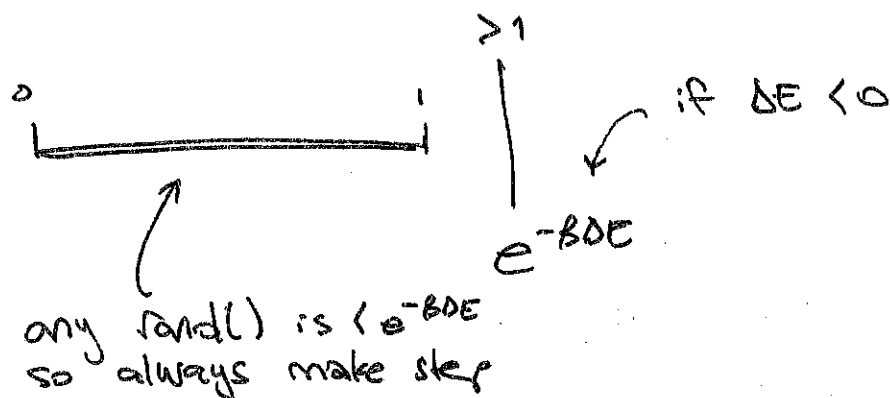 >1
0 1
if ΔE < 0
e^{-βΔE}
any rand() is < e^{-βΔE}
so always make step